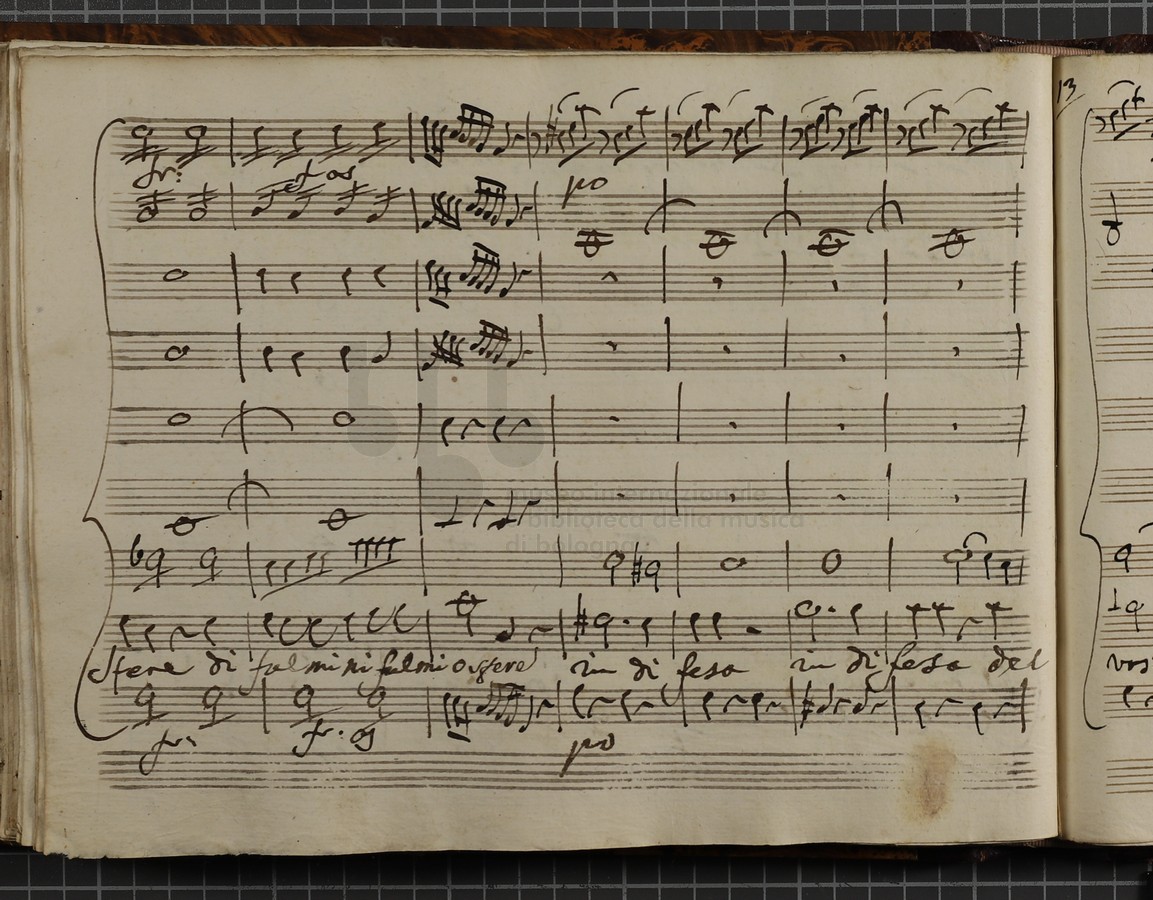 13
fr:
po
Museo internazionale
biblioteca della musica
di bologna
sfere di fulmini fulmi o sfere in di fesa in di fesa del
vos
fr: fr: po